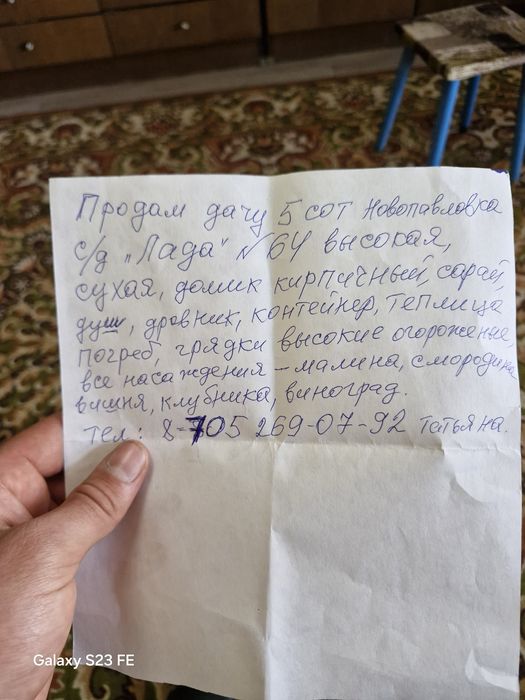 Продам дачу 5 сот Новопавловка
с/д "Лада" №64 высокая,
сухая, домик кирпичный, сарай,
душ, дровник, контейнер, теплица
погреб, грядки высокие огорожение,
все насаждения - малина, смородина
вишня, клубника, виноград.
тел: 8-705 269-07-92 Татьяна.
Galaxy S23 FE